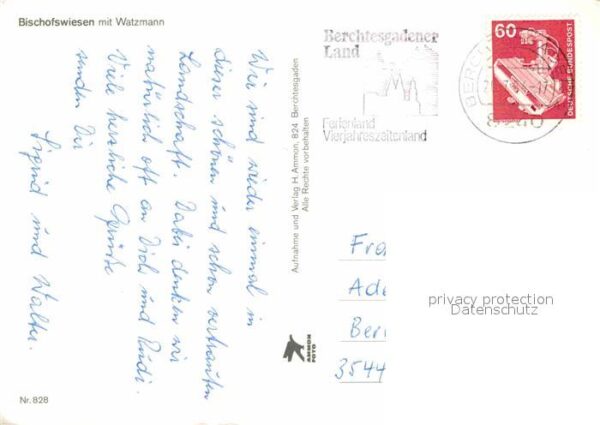 Bischofswiesen mit Watzmann
Wir sind wieder einmal in
dieser schönen und schon vertrauten
Landschaft. Dabei denken wir
natürlich oft an Dich und Rudi.
Viele herzliche Grüße
senden Dir
Sigrid und Walter.
Nr. 828
Aufnahme und Verlag H. Ammon, 824 Berchtesgaden
Alle Rechte vorbehalten
AMMON
FOTO
Berchtesgadener
Land
Ferienland
Vierjahreszeitenland
60
DEUTSCHE BUNDESPOST
8240
Fra
Ade
Ber
3544
privacy protection
Datenschutz